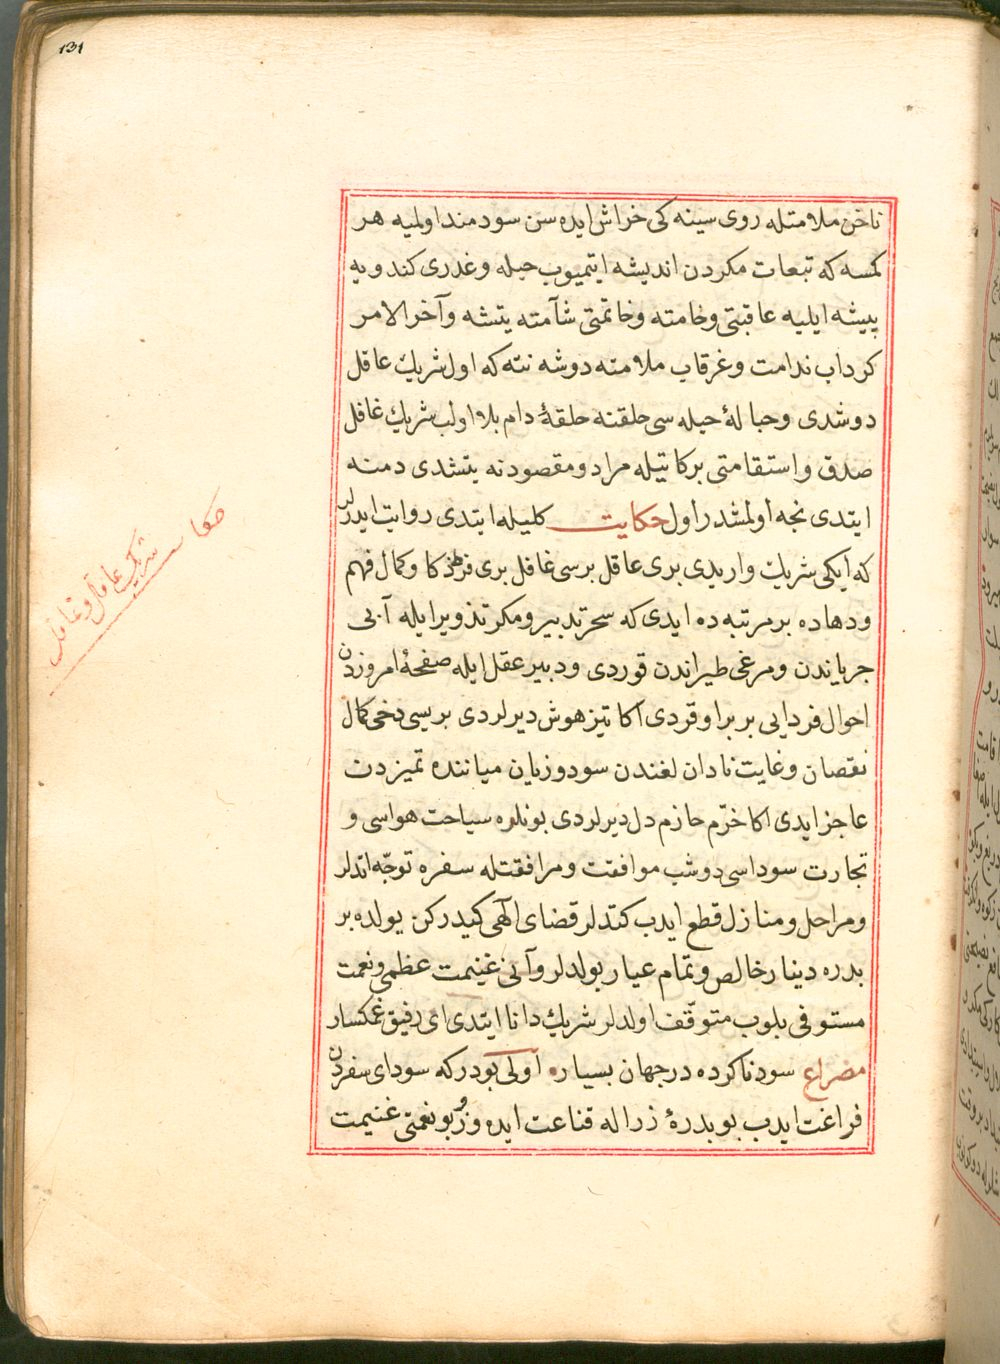 131
ناخن ملامتله روی سینه کی خراش ایده سن سودمند اولمیه هر
کمسه که تبعات مکردن اندیشه ایتمیوب حیله و غدری کندویه
پیشه ایلیه عاقبتی وخامته وخاتمتی شآمته یتشه وآخر الامر
کرداب ندامت وغرقاب ملامته دوشه نته که اول شریك عاقل
دوشدی وحبالهٔ حیله سی حلقنه حلقهٔ دام بلا اولب شریك غافل
صدق واستقامتی برکاتیله مراد و مقصودنه یتشدی دمنه
ایتدی نجه اولمشدر اول حکایت کلیله ایتدی روایت ایدرلر
که ایکی شریك واریدی بری عاقل برسی غافل بری فرط ذکا وکمال فهم
ودهاده بر مرتبه ده ایدی که سحر تدبیر ومکر تذویر ایله آبی
جریاندن ومرغی طیراندن قوردی ودبیر عقل ایله صفحهٔ امروزدن
احوال فردایی بربر اوقردی اکا تیزهوش دیرلردی بریسی دخی کمال
نقصان وغایت نادان لغندن سود وزیان میاننده تمیزدن
عاجز ایدی اکا خرّم حازم دل دیرلردی بونلره سیاحت هواسی و
تجارت سوداسی دوشب موافقت ومرافقتله سفره توجّه اتدلر
ومراحل ومنازل قطع ایدب کتدلر قضای الهی کیدرکن یولده بر
بدره دینار خالص وتمام عیار بولدلر وآنی غنیمت عظمی ونعمت
مستوفی بلوب متوقّف اولدلر شریك دانا ایتدی ای رفیق غمکسار
مصراع سود ناکرده در جهان بسیاره اولی بودر که سودای سفردن
فراغت ایدب بو بدرهٔ زراله قناعت ایده وز بو نعمتی غنیمت
حکایت
شریك عاقل وغافل